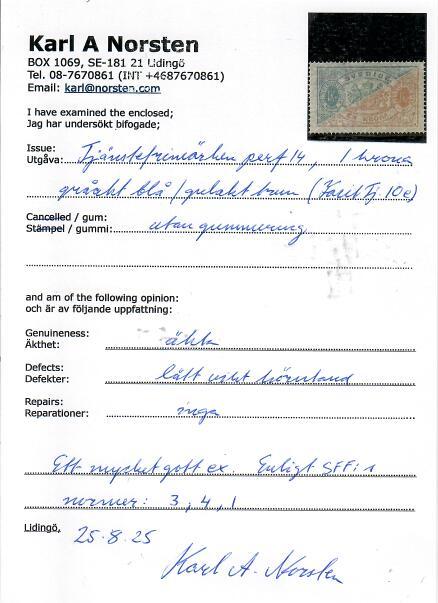 Karl A Norsten
BOX 1069, SE-181 21 Lidingö
Tel. 08-7670861 (INT +4687670861)
Email: karl@norsten.com
I have examined the enclosed;
Jag har undersökt bifogade;
Issue:
Utgåva: Tjänstefrimärken perf 14, 1 krona
gråakt blå / gulakt brun (Facit Tj. 10e)
Cancelled / gum:
Stämpel / gummi: utan gummering
and am of the following opinion:
och är av följande uppfattning:
Genuineness:
Äkthet: äkta
Defects:
Defekter: lätt vikt hörntand
Repairs:
Reparationer: inga
Ett mycket gott ex. Enligt SFF:s
normer: 3, 4, 1
Lidingö, 25.8.25
Karl A. Norsten
SVERIGE